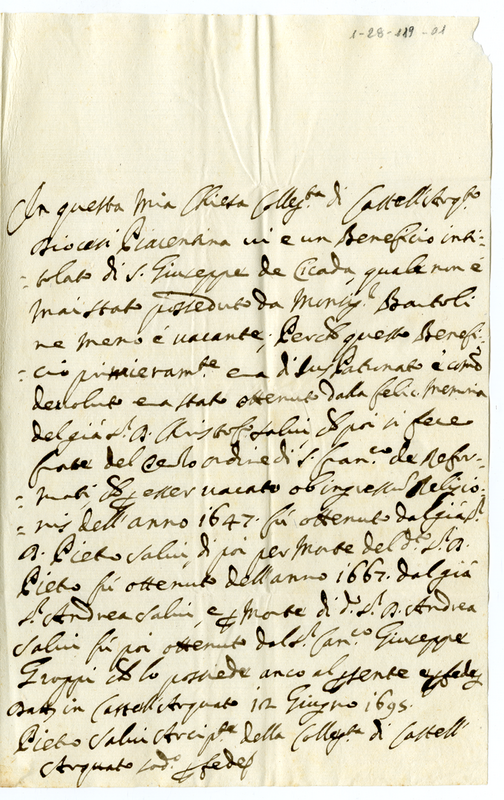 1-28-119-01
In questa mia Chiesa Colleg.ta di Castell'Arq.to
Diocesi Piacentina vi è un Beneficio inti-
-tolato di S. Giuseppe de Cicada quale non è
mai stato posseduto da Monsig.r Bartoli
ne meno è vacante; Perche questo Benefi-
-cio primieram.te era di Jus Patronato è come
devoluto era stato ottenuto dalla felic. memoria
del già S.r D. Christof. Salvi, che poi si fece
frate del ordine di S. Fran.co de Refor-
-mati, che p esser vacato ob ingressum Religio-
-nis dell'anno 1647. fù ottenuto dal già S.r
D. Pietro Salvi, di poi per Morte del d.o S.r D.
Pietro fù ottenuto dell'anno 1667. dal già
S.r Andrea Salvi, e p Morte di d.o S.r D. Andrea
Salvi fù poi ottenuto dal S.r Can.co Giuseppe
Groppi che lo possiede anco al psente e p fede
Datt. in Castell'Arquato 12 Giugno 1695.
Pietro Salvi Arcip.te della Colleg.ta di Castell'
Arquato p fede